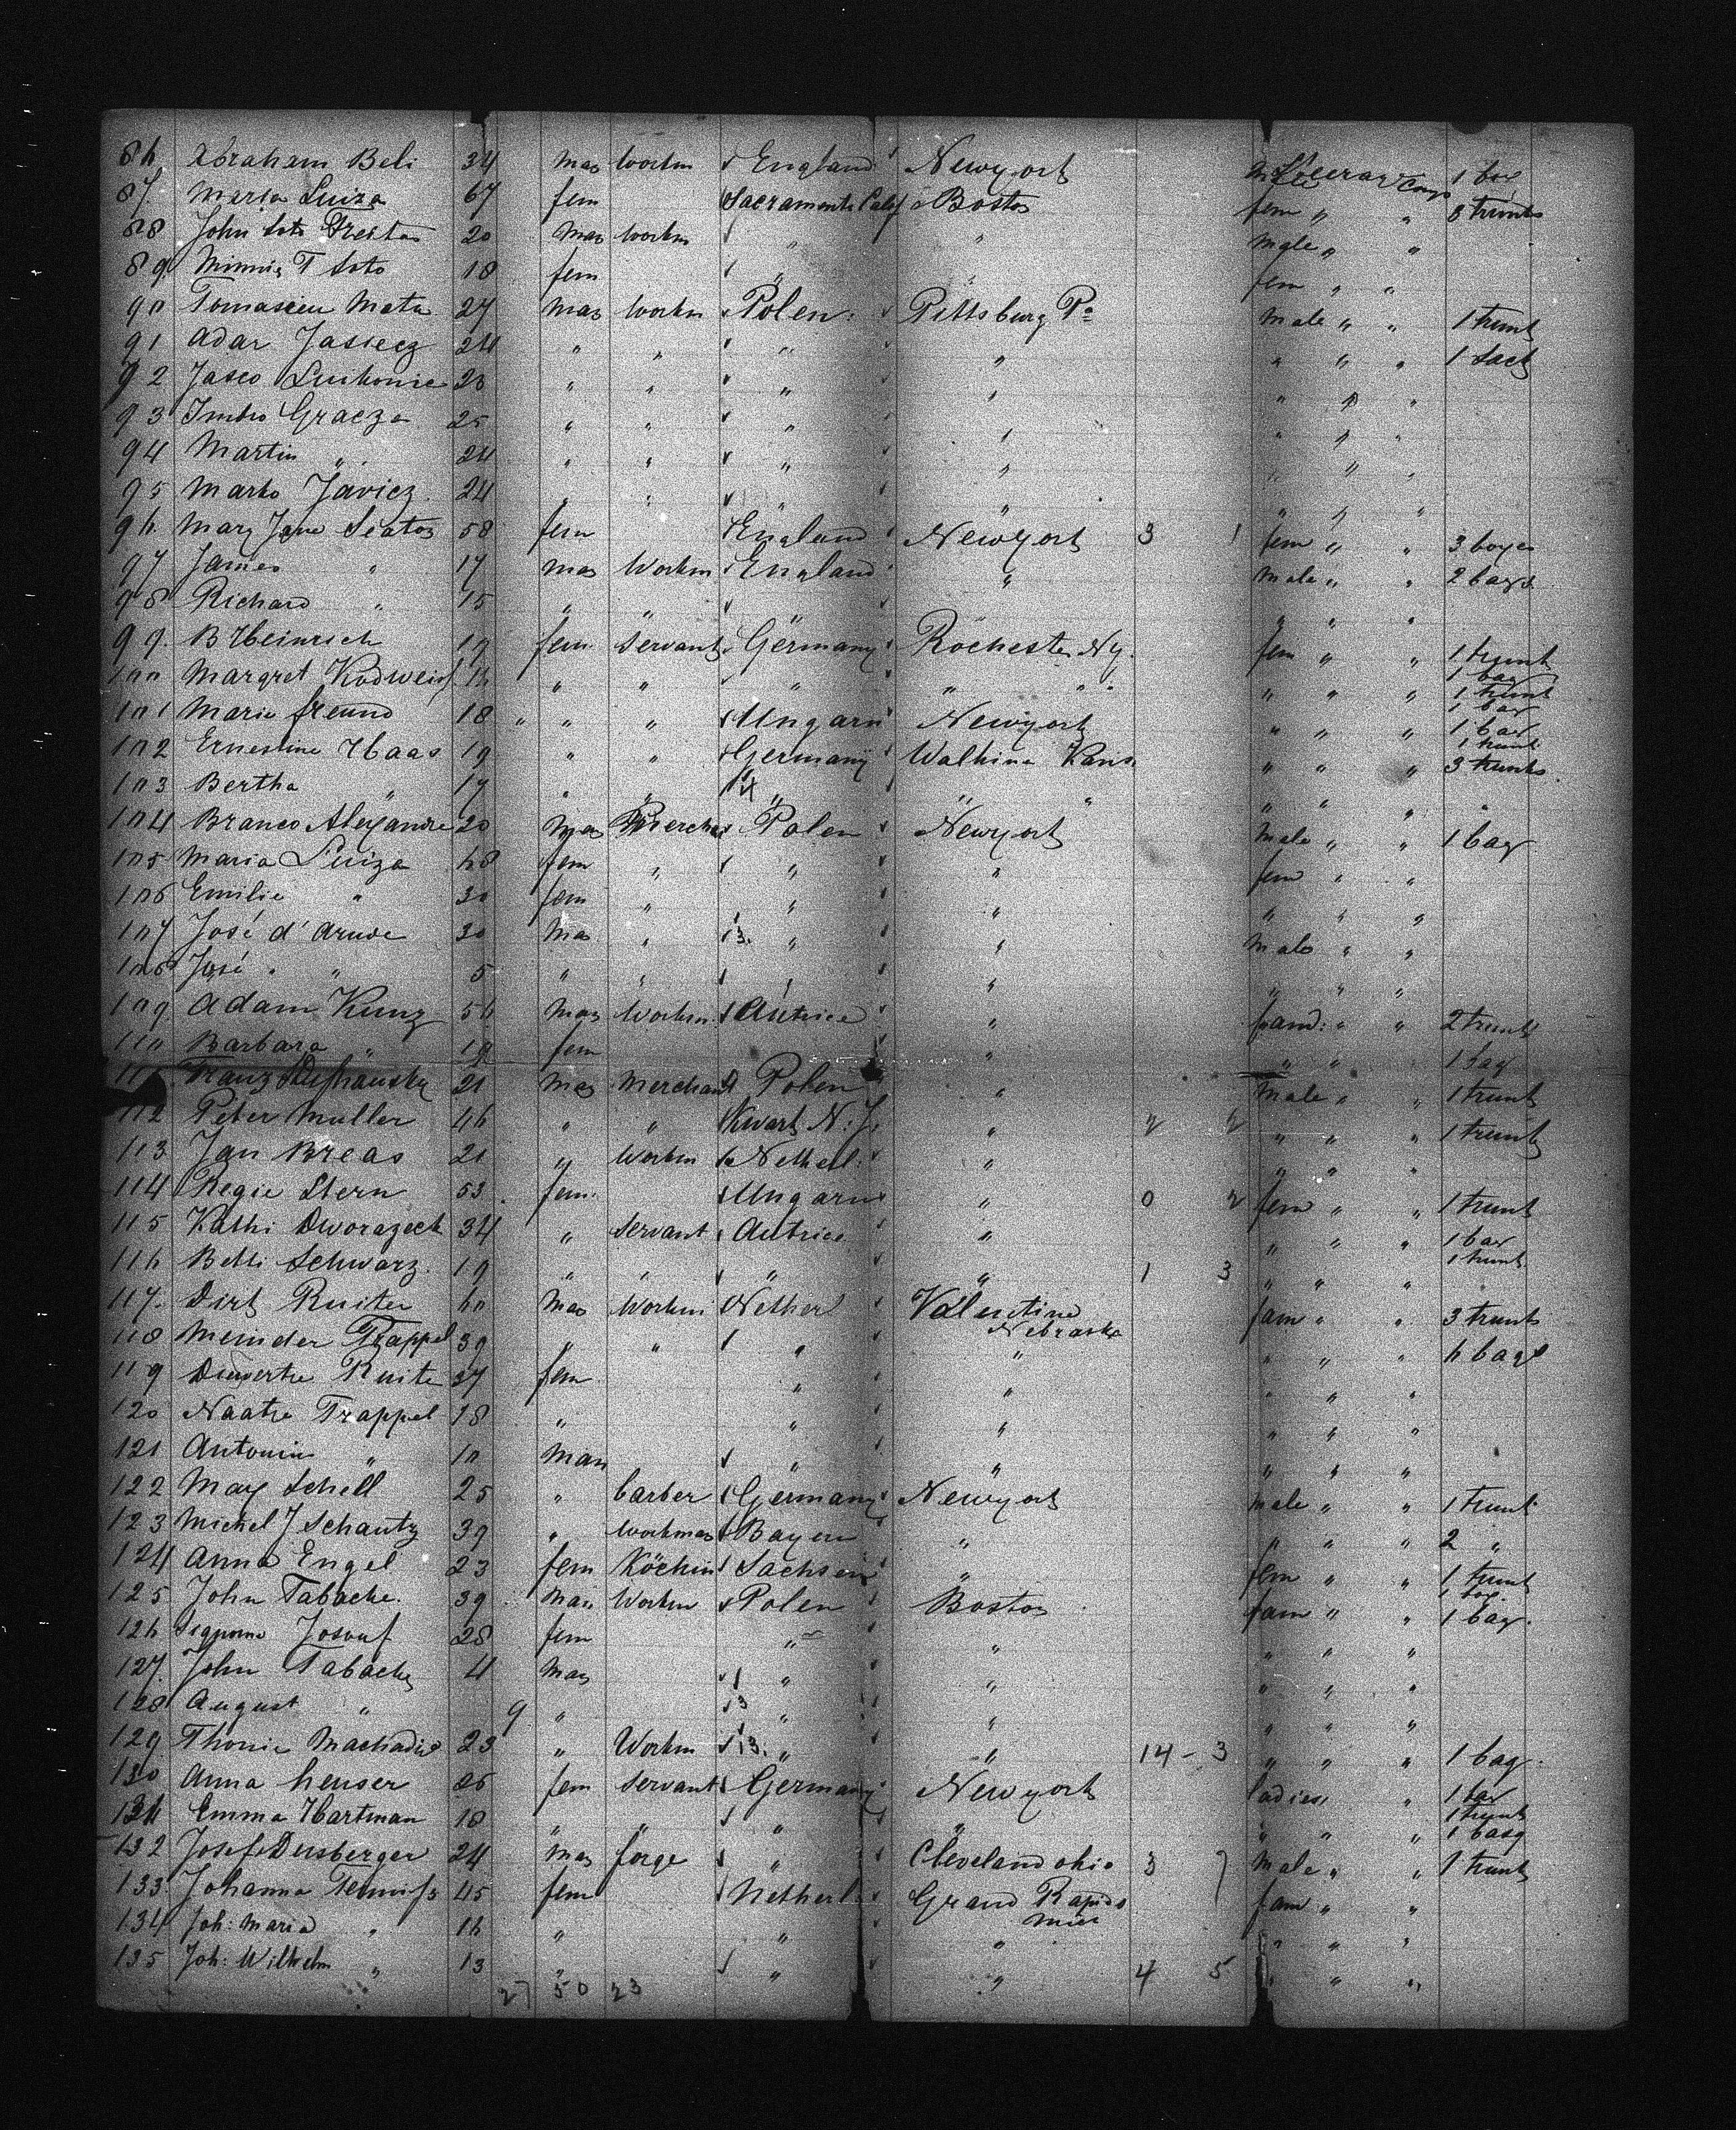 86 Abraham Beli 34 man workm England Newyork Steerage Comp 1 box
87 Maria Luiza 67 fem Sacramento Calif Boston fem " " 8 trunks
88 John Soto Freitas 20 man workm " " male " "
89 Minnie T Soto 18 fem " " fem " "
90 Tomascieu Mata 27 man workm Polen Pittsburg Pa male " " 1 trunk
91 Adar Jasiecz 24 " " " " " " " 1 sack
92 Jasco 28 " " " " " " "
93 Imbro Gracza 25 " " " " " " "
94 Martin " 24 " " " " " " "
95 Marko Javicz 24 " " " " " " "
96 Mary Jane Seaton 58 fem England Newyork 3 1 fem " " 3 boxes
97 James " 17 man workm England " male " " 2 bags
98 Richard " 15 " " " " "
99 B Heinrich 19 fem servant Germany Rochester N.y. fem " " 1 trunk 1 bag
100 Margret Kodweiss 16 " " " " " " " " 1 trunk 1 bag
101 Marie Freund 18 " " " Ungarn Newyork " " " 1 bag 1 trunk
102 Ernestine Haas 19 " " Germany Walkina Kans " " " 3 trunks
103 Bertha " 17 " " 4 " " " " " " "
104 Branco Alexandre 20 man Mercha Polen Newyork male " " 1 bag
105 Maria Luiza 68 fem " " " fem " "
106 Emilie " 30 fem " " " " " "
107 José d' 30 ma " 13. " " male " "
108 José " " 5 " " " " " "
109 Adam Kunz 56 man workm Autrice " fam: " " 2 trunks
110 Barbara " 19 fem " " " 1 bag
111 Franz 21 man merchant Polen " male " " 1 trunk
112 Peter Muller 46 " " Newark N. J. " 2 2 " " " 1 trunk
113 Jan Breas 21 " workm Netherl. " " " "
114 Regie Stern 53 fem. Ungarn " 0 2 fem " " 1 trunk
115 Kathi Dworazeck 34 " servant Autrice " " " " 1 bag 1 trunk
116 Betti Schwarz. 19 " " " " 1 3 " " " "
117. Dirk Ruiter 60 man workm Netherl Valentine Nebraska fam " " 3 trunks
118 Meinder Trappel 39 " " " " " " " 6 bags
119 Ruite 37 fem " " " " "
120 Naatje Trappel 18 " " " " " "
121 Antonin " 10 man " " " " "
122 Max Schell 25 " barber Germany Newyork male " " 1 trunk
123 Michel J Schautz 39 " workman Bayern " " " " 2 "
124 Anna Engel 23 fem Köchin Sachsen " fem " " 1 trunk 1 box
125 John Tabacke. 39 man Workm Polen Boston fam " " 1 bag.
126 Josouf 28 fem " " " " "
127. John Tabacke 4 man 1 " " " " "
128 August " 9 " 3 " " " " "
129. Thonie Machadio 23 " Workm 13. " " 14 - 3 " " " 1 bag.
130 Anna Heuser 26 fem servant Germany Newyork ladies " " 1 bag 1 trunk
131 Emma Hartman 18 " " " " " " " 1 basq
132 Josef Dusberger 24 man forge " Cleveland ohio 3 7 male " " 1 trunk
133. Johanna Tennifs 45 fem Netherl. Grand Rapids Mich fam " "
134 Joh: Maria " 16 " " " " " "
135 Joh: Wilhelm " 13 " " " 4 5 " " "
27 50 23